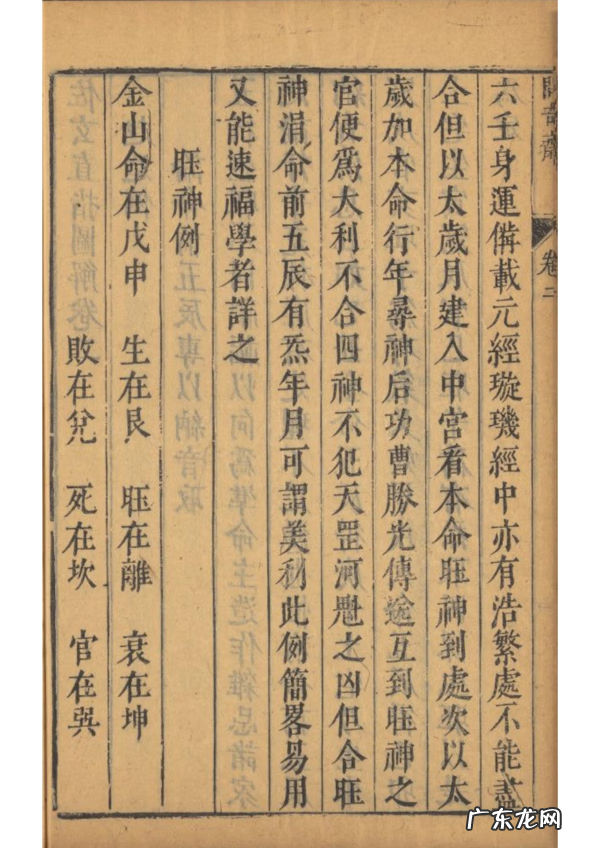 卷二
六壬身運俻載元經璇璣經中亦有浩繁處不能盡
合但以太歲月建入中宮看本命旺神到處次以太
歲加本命行年尋神后功曹勝光傳送互到旺神之
官便爲大利不合四神不犯天罡河魁之凶但合旺
神涓命前五辰有炁年月可謂美利此例簡畧易用
又能速福學者詳之
旺神例
金山命在戊申　生在艮　旺在離　衰在坤
敗在兊　死在坎　官在巽
广东龙网